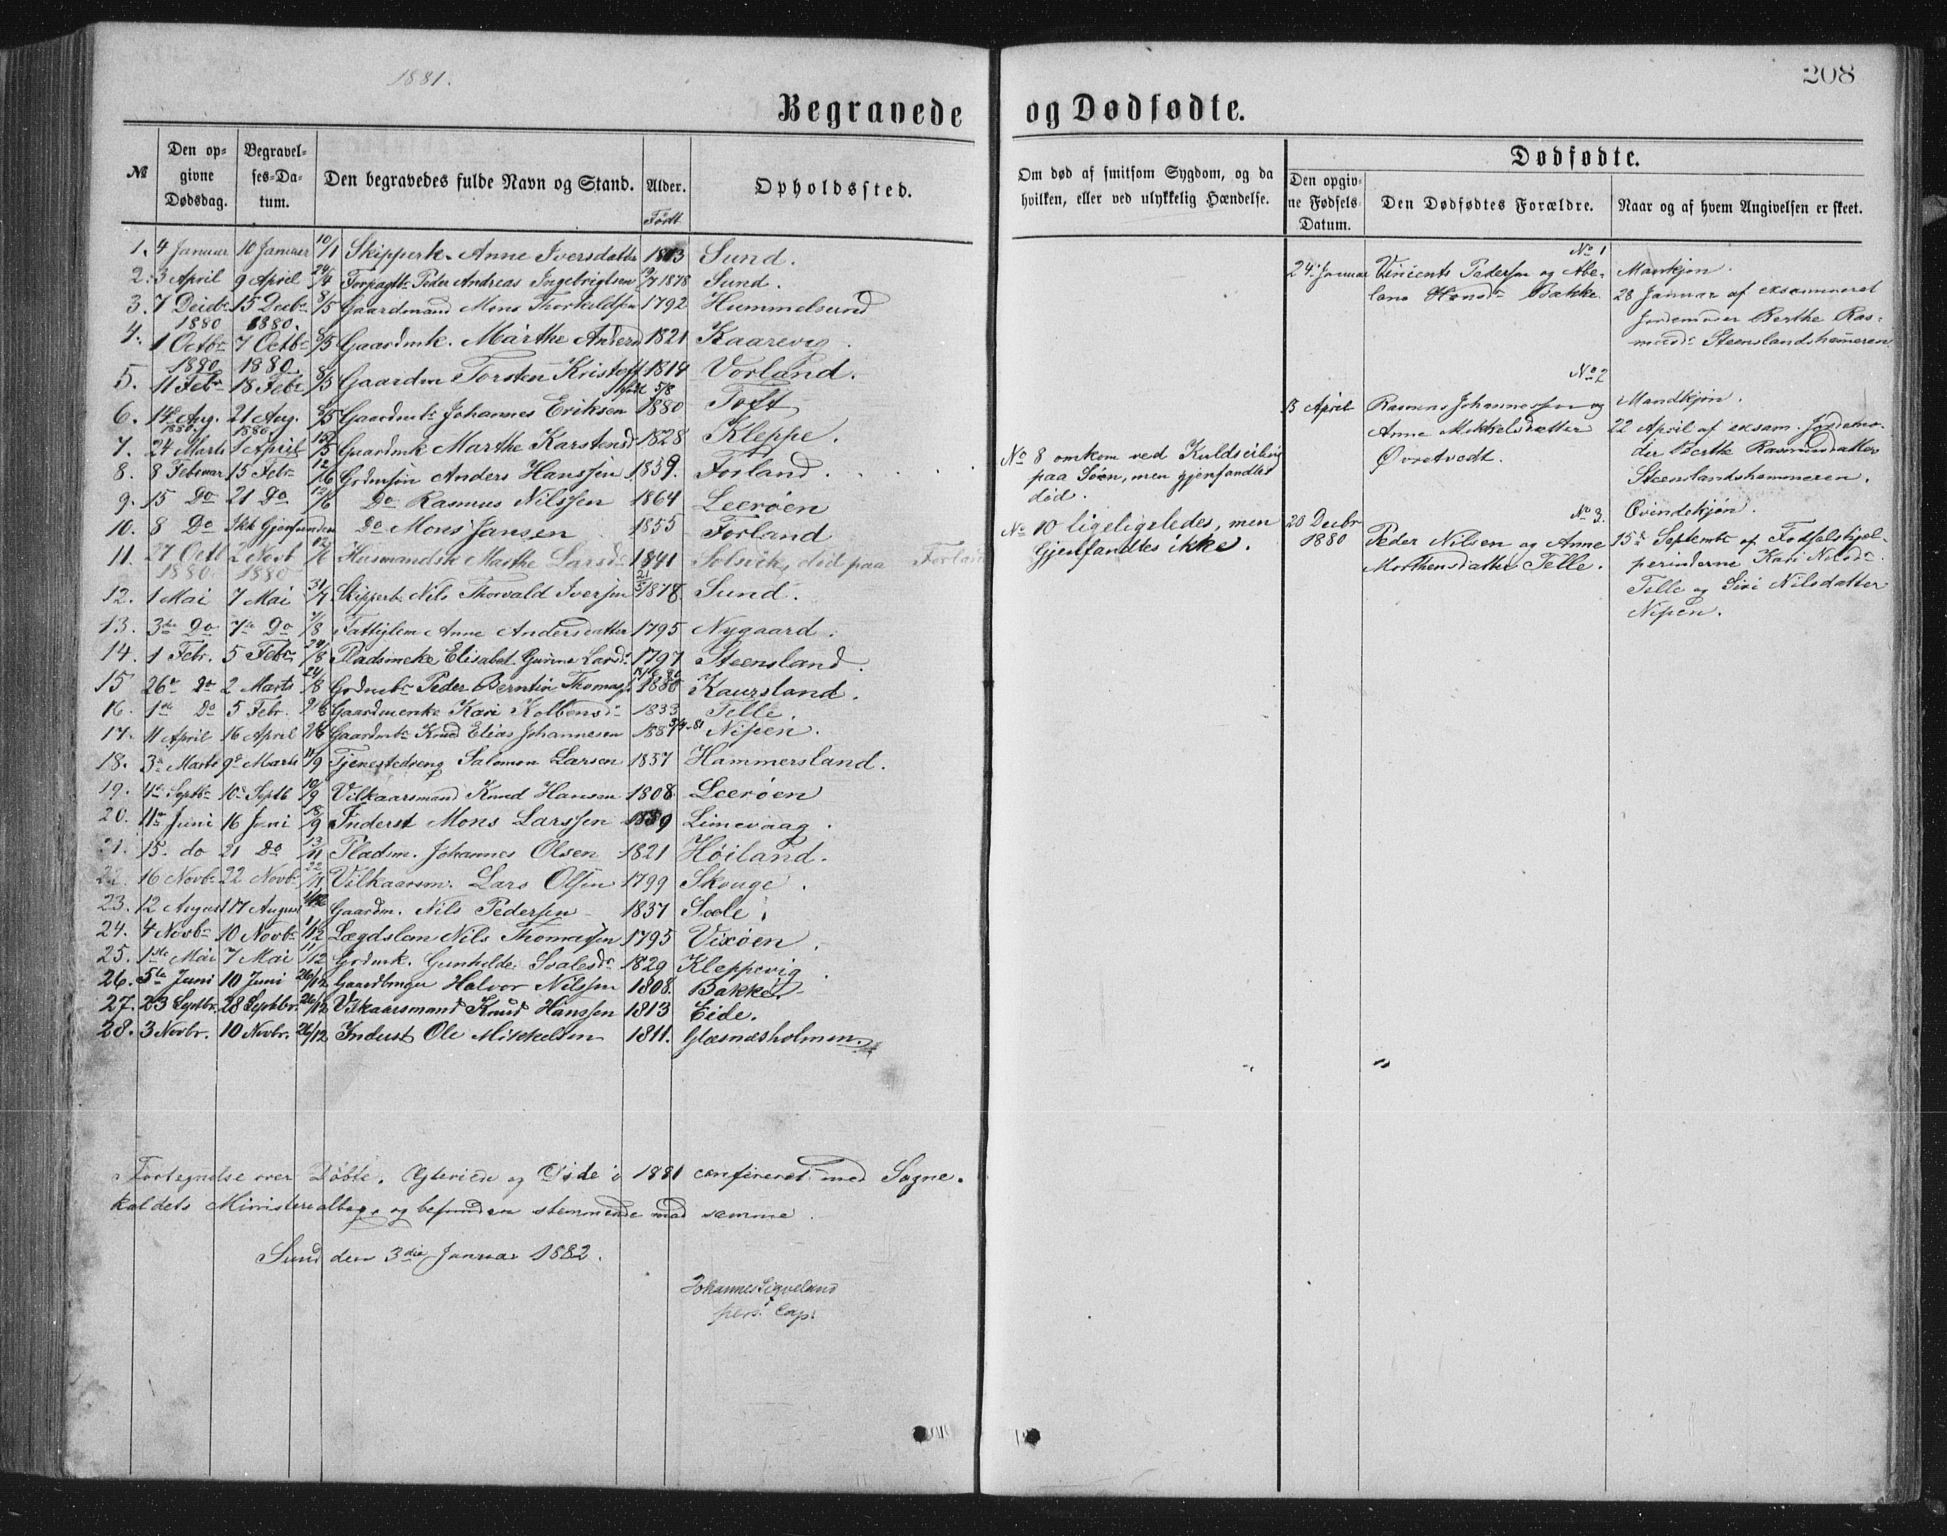 1881.
208
Begravede og Dødfødte.
№
Den opgivne Dødsdag.
Begravelses-Datum.
Den begravedes fulde Navn og Stand.
Alder.
Født
Opholdssted.
Om død af smitsom Sygdom, og da hvilken, eller ved ulykkelig Hændelse.
Dødfødte.
Den opgivne Fødsels-Datum.
Den Dødfødtes Forældre.
Naar og af hvem Angivelsen er skeet.
1. 4 Januar 10 Januar 10/1 Skipperk. Anne Iversdatter 1813 Sund.
2. 3 April 9 April 24/4 Peder Andreas Ingebrigtsen 1878 Sund.
3. 7 Decbr 1880 15 Decbr 1880. 8/5 Gaardmand Mons Thorkildsen 1792 Hummelsund
4. 1 Octbr 1880 7 Octbr 1880. 8/5 Gaardmk. Marthe Andersd 1821 Kaarevig.
5. 11 Febr 18 Febr Gaardm Torsten Kristoff 1814 Vorland.
6. 14de Aug. 1880 21 Aug. 1880 8/5 Gaardmb. Johannes Eriksen født 5/8 1880 Toft
7. 24 Marts 1 April 15/5 Gaardmk Marthe Karstensd 1828 Kleppe.
8. 8 Februar 15 Febr 12/6 Grdmsøn Anders Hanssen 1859. Forland.
9. 15 Do 21 Do 12/6 Do Rasmus Nilssen 1864 Leerøen
10. 8 Do Ikk Gjenfunden Do Mons Jansen 1855 Forland
11. 27 Octb 1880 2 1880 12/6 Husmandsk Marthe Larsd 1841 Solsvik, død paa Forland
12. 1 Mai 7 Mai 31/7 Skipperb. Nils Thorvald Iversen 1878 Sund.
13. 3de Do 7de Do 7/8 Fattiglem Anne Andersdatter 1795 Nygaard.
14. 1 Febr. 5 Febr. Pladsmeke Elisabet Larsd. 1797 Steensland.
15 26de Do 2 Marts Grdmb. Peder Berntin Thomas 1880 Kausland.
16. 1ste Do 5 Febr. Gaardmenk Kari Kolbensd. 1833 Telle
17. 11 April 16 April Gaardmb. Knud Elias Johannesen Nipen.
18. 3de Marts 9de Marts 11/9 Tjenestedreng Salomon Larsen 1857 Hammersland.
19. 4de Septbr 10de Septb 10/9 Vilkaarsmand Knud Hansen 1808. Leerøen
20. 11te Juni 16 Juni 18/9 Inderst Mons Larssen Limevaag.
21. 15. do 21 Do 13/11 Pladsm. Johannes Olsen 1821 Høiland.
22. 16 Novbr 22 Novbr. 22/11 Vilkaarsm. Lars Olsen 1799 Skouge.
23. 12 August 17 August Gaardm. Nils Pedersen 1837 Sole.
24. 4 Novbr 10 Novbr 1/12 Lægdslem Nils Thomassen 1795 Vixøen.
25. 1ste Mai 7 Mai 11/12 Grdmk. Gunhilde 1829 Kleppevig.
26. 5te Juni 10 Juni 26/12 Gaardbruger Halvor Nilssen 1808. Bakke.
27. 23 Septbr. 28 Septbr. 26/12 Vilkaarsmand Knud Hanssen 1813 Eide.
28. 3 Novbr. 10 Novbr. 26/12 Inderst Ole Mikkelsen 1811. Glæsnæsholmen.
Fortegnelse over Døbte, Ægteviede og Døde i 1881 confereret med Sogne-
kaldets Ministerialbog, og befunden stemmende med samme.
Sund den 3die Januar 1882.
Johannes Sigveland
pers. Cap.
No 8 omkom ved Kuldseiling
paa Søen, men gjenfandtes
død.
No 10 ligeligeledes, men
Gjenfandtes ikke.
No 1
24 Januar Vincents Pedersen og Abe-
lone Hansd. Bakke.
Mankjøn.
28 Januar af eksamineret
Jordemoder Berthe Ras-
musd. Steenslandshammeren.
No 2
13 April Rasmus Johannessen og
Anne Mikkelsdatter
Øvretvedt.
Mandkjøn.
22 April af eksam. Jordemo-
der Berthe Rasmusdatter
Steenslandshammeren.
No 3.
20 Decbr 1880 Peder Nilsen og Anne
Morthensdatter Telle.
Qvindekjøn.
15de Septembr af Fødselshjel-
perinderne Kari Nilsd.
Telle og Siri Nilsdatter
Nipen.